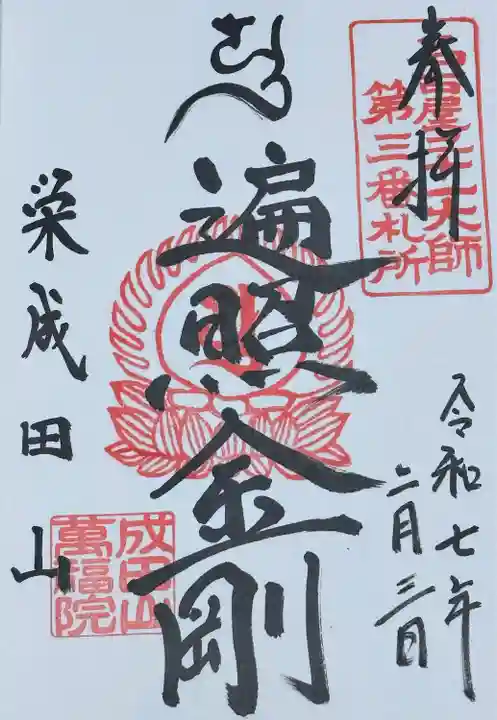 奉拝
名古屋二十一大師
第三番札所
遍照金剛
令和七年
二月三日
栄成田山
成田山
萬福院